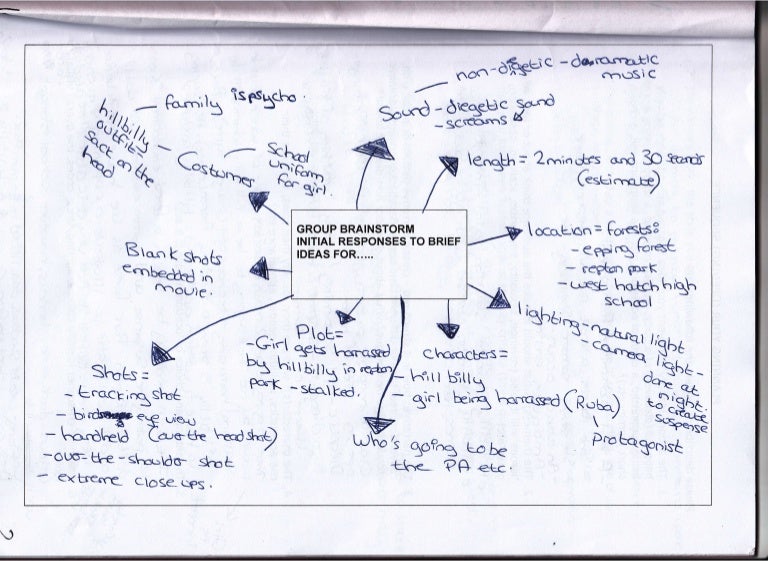 GROUP BRAINSTORM
INITIAL RESPONSES TO BRIEF
IDEAS FOR.....
non-digetic - dramatic
music
Sound - diegetic sound
- screams
length = 2minutes and 30 seconds
(estimate)
location = forests:
- epping forest
- repton park
- west hatch high
school
lighting - natural light
- camea light -
done at
night.
to create
suspense
characters =
- hill billy
- girl being harrassed (Ruba)
protagonist
Who's going to be
the PA etc.
Plot =
- Girl gets harassed
by hillbilly in repton
park - stalked.
Shots =
- tracking shot
- birds eye view
- handheld (over the head shot)
- over-the-shoulder shot
- extreme close ups.
Blank shots
embedded in
movie.
Costumer
School
uniform
for girl.
hillbilly
outfit =
sack on the
head
family is psycho.